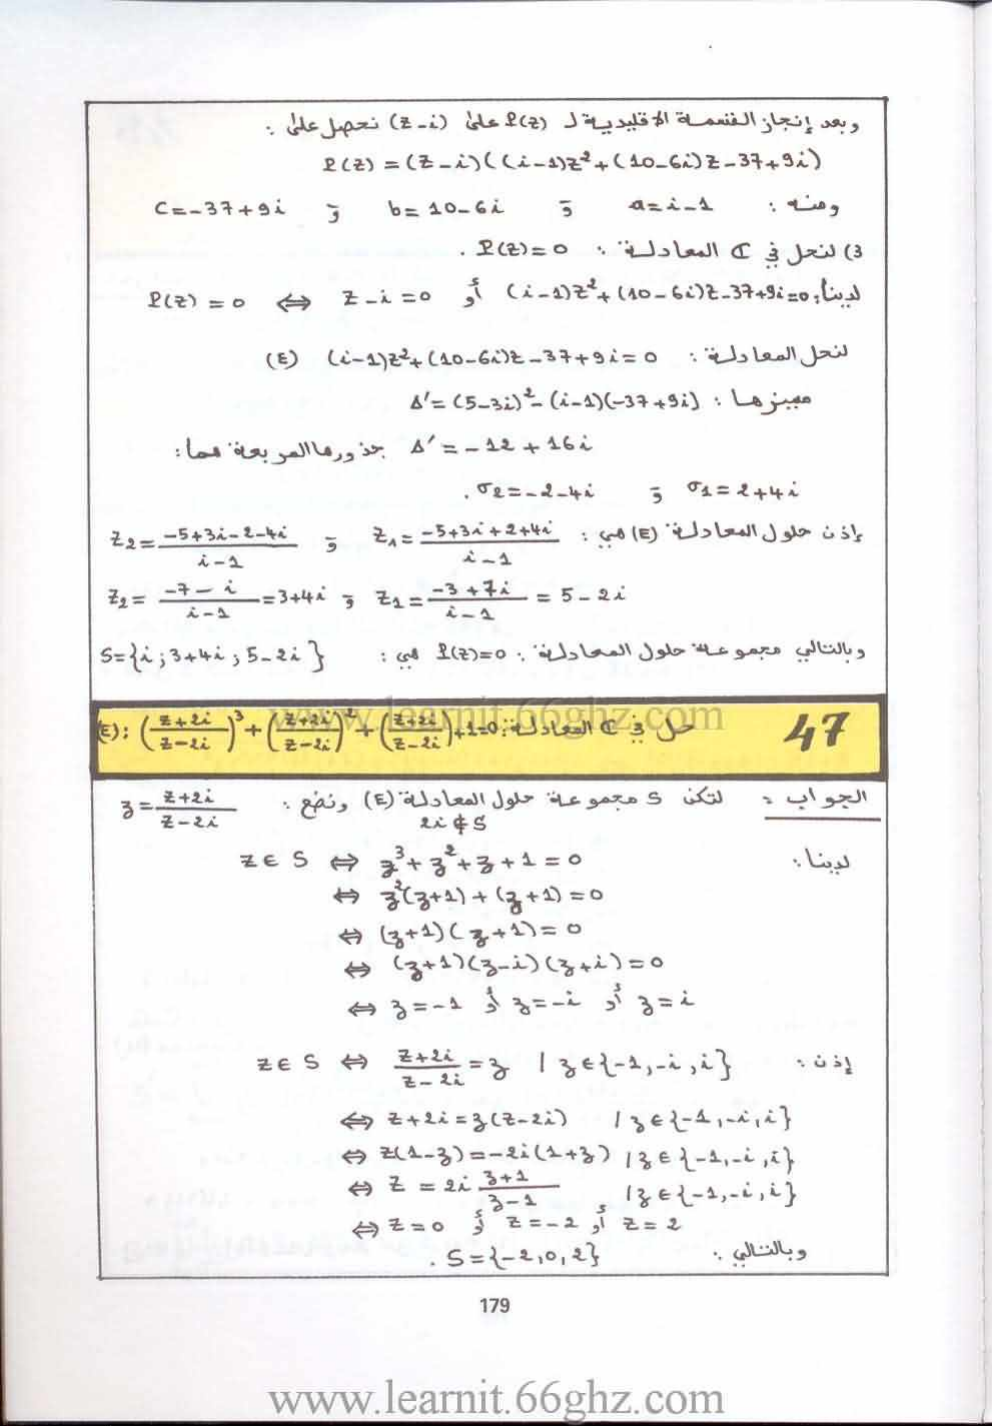 وبعد إنجاز القسمة الاقليدية لـ P(z) على (z-i) نحصل على :
P(z) = (z-i)((i-1)z²+(10-6i)z-37+9i)
ومنه : a=i-1 و b=10-6i و c=-37+9i
3) لنحل في ℂ المعادلة : P(z)=0 .
لدينا: P(z)=0 ⇔ z-i=0 أو (i-1)z²+(10-6i)z-37+9i=0
لنحل المعادلة : (E) (i-1)z²+(10-6i)z-37+9i=0
مميزها : Δ'=(5-3i)²-(i-1)(-37+9i)
Δ'=-12+16i جذورها المربعة هما :
σ1=2+4i و σ2=-2-4i .
إذن حلول المعادلة (E) هي : z1=(-5+3i+2+4i)/(i-1) و z2=(-5+3i-2-4i)/(i-1)
z1=(-3+7i)/(i-1)=5-2i و z2=(-7-i)/(i-1)=3+4i
وبالتالي مجموعة حلول المعادلة : P(z)=0 هي : S={i;3+4i;5-2i}
47 حل في ℂ المعادلة: (E): ((z+2i)/(z-2i))³+((z+2i)/(z-2i))²+((z+2i)/(z-2i))+1=0
www.learnit.66ghz.com
الجواب : لتكن S مجموعة حلول المعادلة (E) ونضع : ʒ=(z+2i)/(z-2i)
2i∉S
لدينا : z∈S ⇔ ʒ³+ʒ²+ʒ+1=0
⇔ ʒ²(ʒ+1)+(ʒ+1)=0
⇔ (ʒ+1)(ʒ+1)=0
⇔ (ʒ+1)(ʒ-i)(ʒ+i)=0
⇔ ʒ=-1 أو ʒ=-i أو ʒ=i
إذن : z∈S ⇔ (z+2i)/(z-2i)=ʒ | ʒ∈{-1,-i,i}
⇔ z+2i=ʒ(z-2i) | ʒ∈{-1,-i,i}
⇔ z(1-ʒ)=-2i(1+ʒ) | ʒ∈{-1,-i,i}
⇔ z=2i (ʒ+1)/(ʒ-1) | ʒ∈{-1,-i,i}
⇔ z=0 أو z=-2 أو z=2
وبالتالي : S={-2,0,2} .
179
www.learnit.66ghz.com